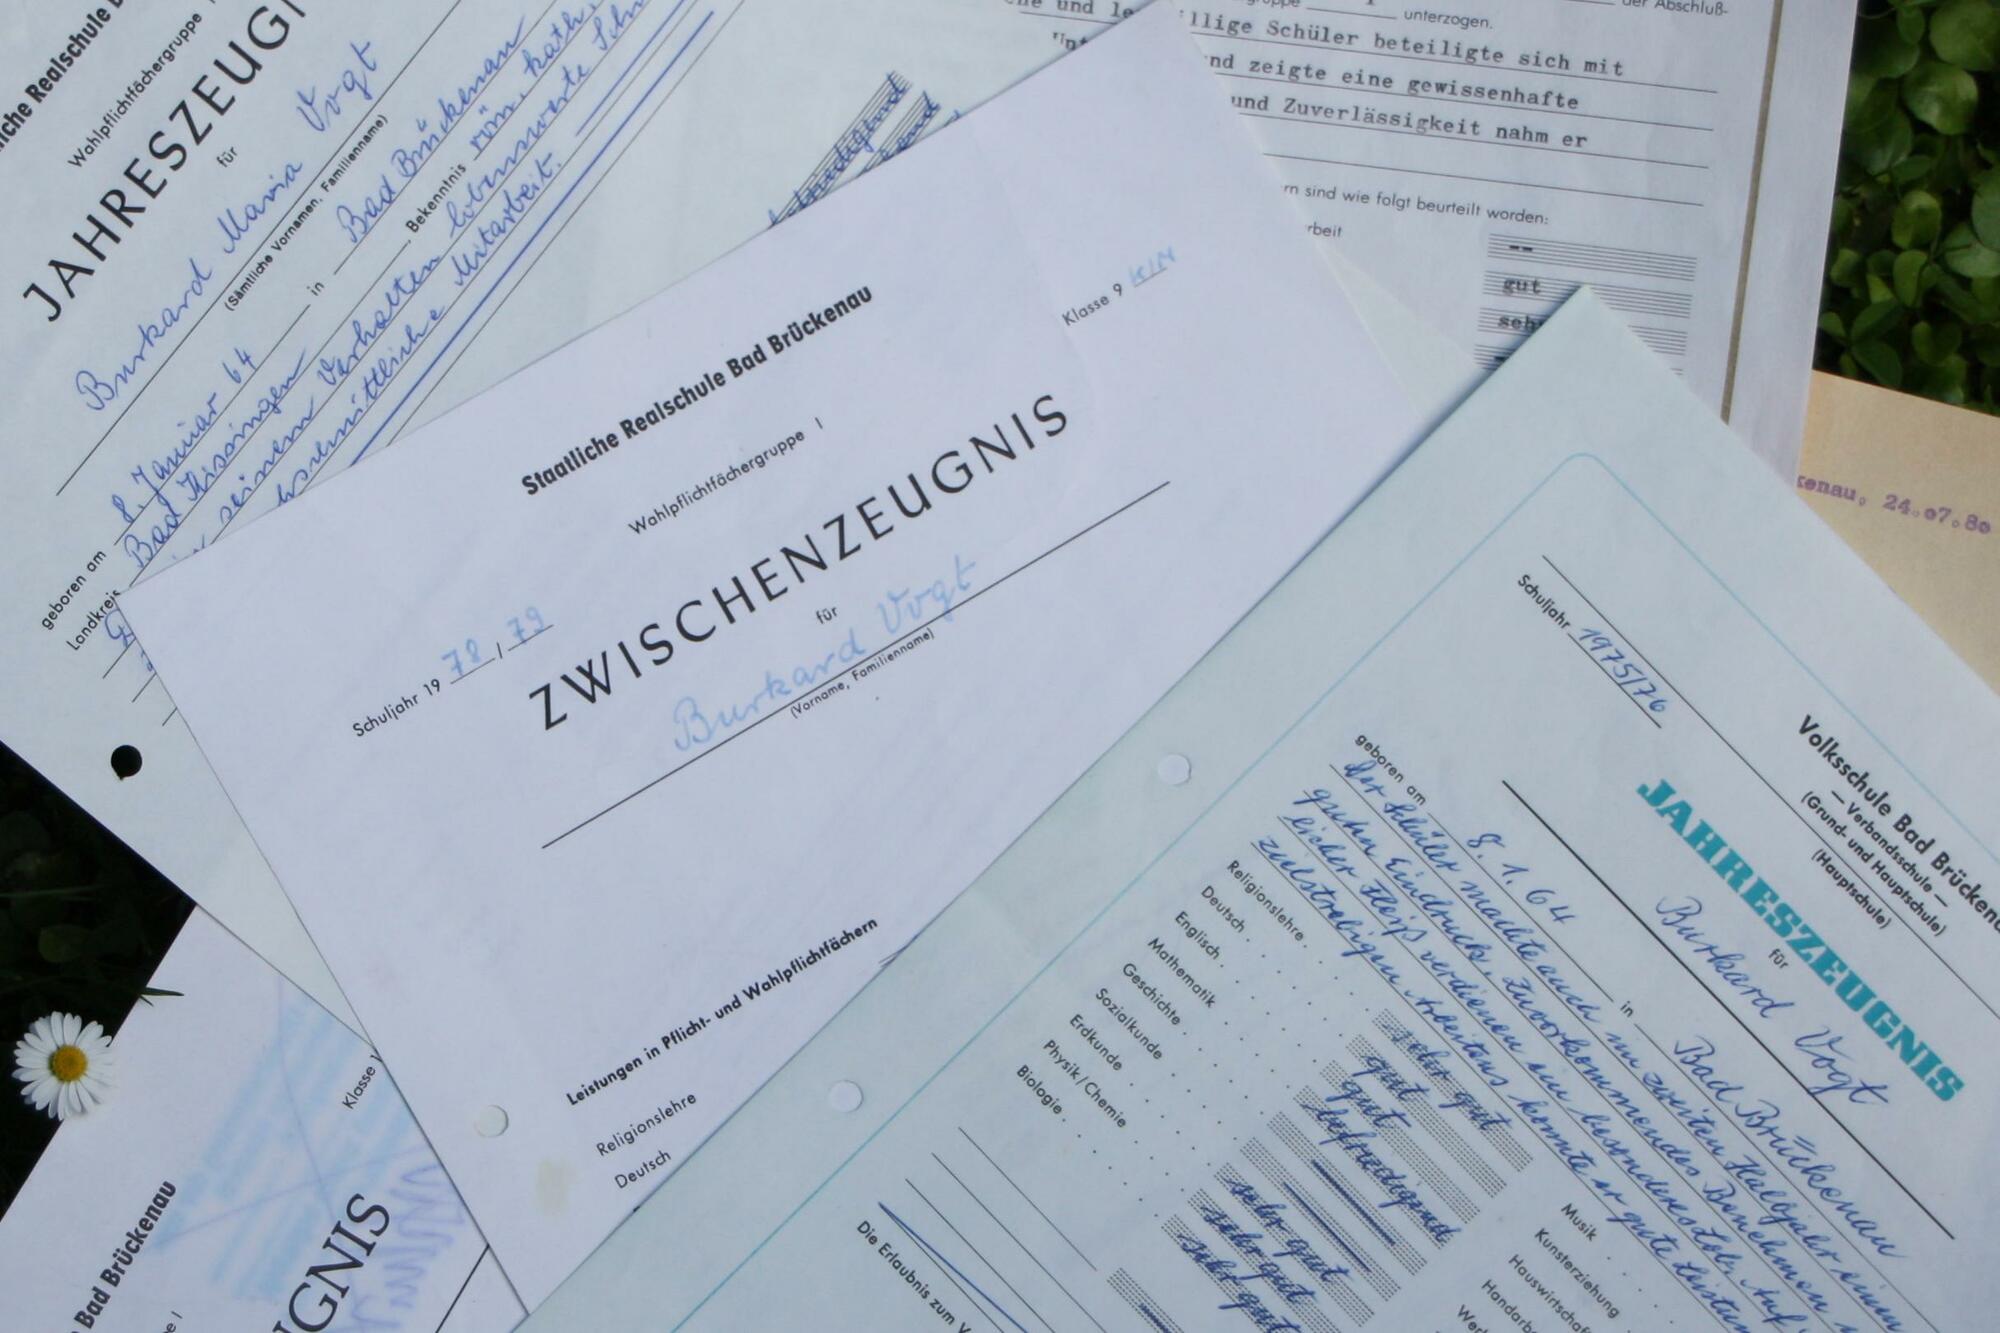 Wahlpflichtfächergruppe I
JAHRESZEUGNIS
für
Burkard Maria Vogt
(Sämtliche Vornamen, Familienname)
geboren am 8. Januar 64 in Bad Brückenau
Landkreis Bad Kissingen Bekenntnis röm. kath.
seinem Verhalten lobenswerte
Mitarbeit.
befriedigend
der Abschluß-
unterzogen.
llige Schüler beteiligte sich mit
nd zeigte eine gewissenhafte
und Zuverlässigkeit nahm er
rn sind wie folgt beurteilt worden:
rbeit
--
gut
sehr
Staatliche Realschule Bad Brückenau
Wahlpflichtfächergruppe I
Klasse 9
Schuljahr 19 78 / 79
ZWISCHENZEUGNIS
für
Burkard Vogt
(Vorname, Familienname)
Leistungen in Pflicht- und Wahlpflichtfächern
Religionslehre
Deutsch
kenau, 24.07.80
Volksschule Bad Brückenau
— Verbandsschule —
(Grund- und Hauptschule)
(Hauptschule)
Schuljahr 1975/76
JAHRESZEUGNIS
für
Burkard Vogt
geboren am 8. 1. 64 in Bad Brückenau
Der Schüler machte auch im zweiten Halbjahr einen
guten Eindruck. Zuvorkommendes Benehmen
licher Fleiß verdienen ein besonderes Lob. Auf
zielstrebigen Arbeitens konnte er gute Leistun
Religionslehre sehr gut
Deutsch gut
Englisch gut
Mathematik befriedigend
Geschichte
Sozialkunde
Erdkunde sehr gut
Physik/Chemie sehr gut
Biologie sehr gut
Musik
Kunsterziehung
Hauswirtschaf
Handarb
Wer
Die Erlaubnis zum V
Bad Brückenau
Klasse
GNIS